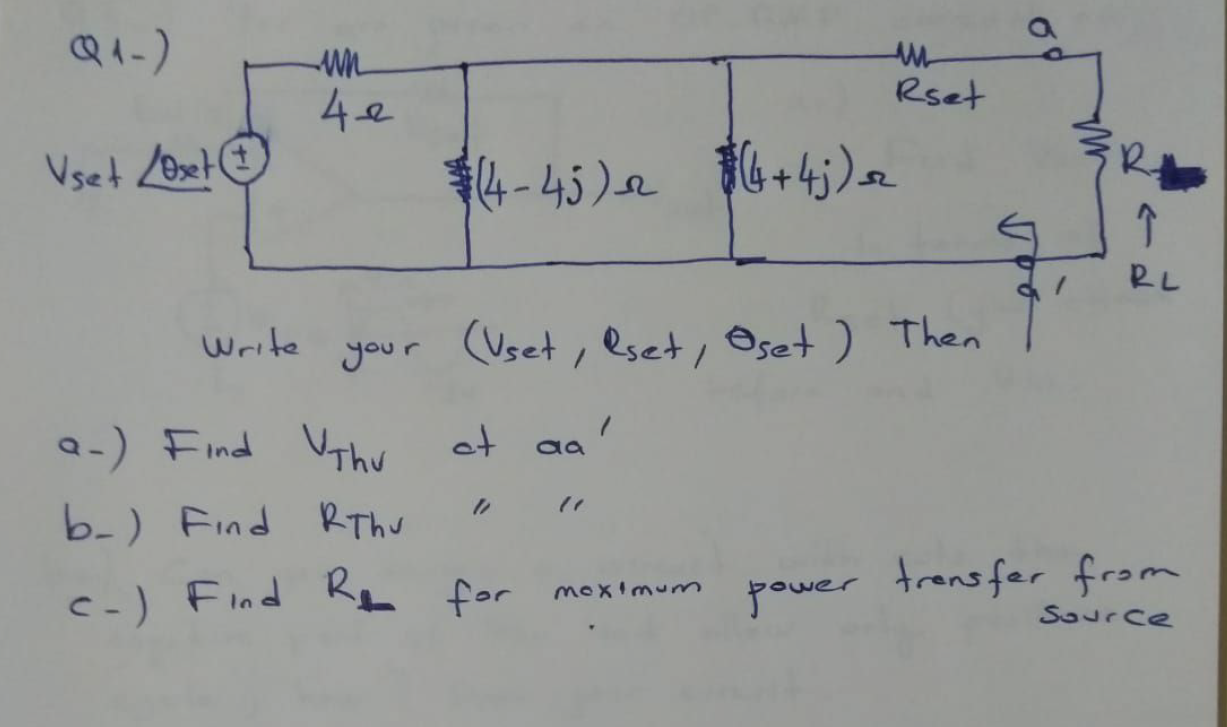 Q1-)
a
4Ω
Rset
Vset ∠θset
(4-4j)Ω
(4+4j)Ω
R
a'
RL
Write your (Vset, Rset, θset) Then
a-) Find VThv at aa'
b-) Find RThv " "
c-) Find RL for maximum power transfer from
source